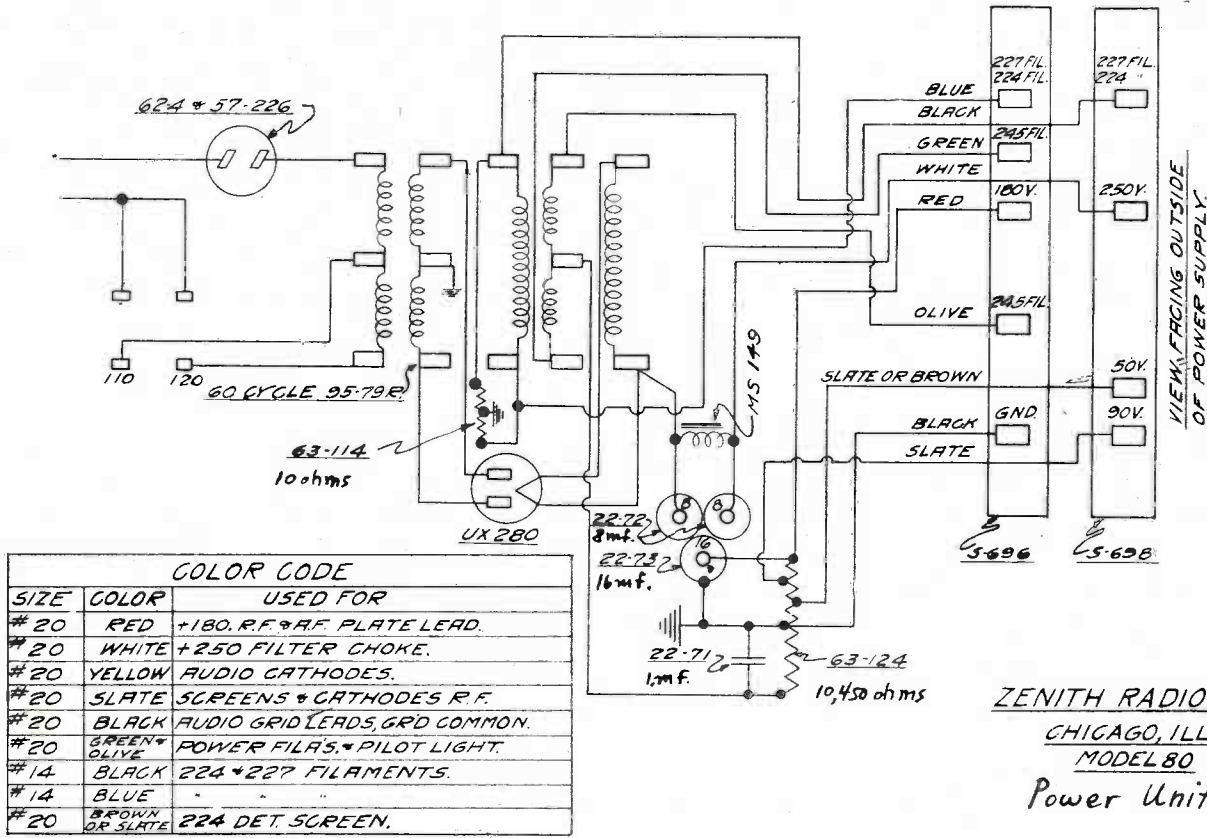 62-4 & 57-226
110
120
60 CYCLE 95-79R
63-114
10 ohms
UX 280
MS 149
8
8
16
22-72
8mf.
22-73
16mf.
22-71
1,mf.
63-124
10,450 ohms
BLUE
BLACK
GREEN
WHITE
RED
OLIVE
SLATE OR BROWN
BLACK
SLATE
227 FIL.
224 FIL.
245 FIL.
180V.
245 FIL.
GND.
227 FIL.
224 "
250V.
50V.
90V.
S-696
S-698
VIEW FACING OUTSIDE
OF POWER SUPPLY.
COLOR CODE
SIZE COLOR USED FOR
#20 RED +180. R.F. & A.F. PLATE LEAD.
#20 WHITE +250 FILTER CHOKE.
#20 YELLOW AUDIO CATHODES.
#20 SLATE SCREENS & CATHODES R.F.
#20 BLACK AUDIO GRID LEADS, GR'D COMMON.
#20 GREEN & OLIVE POWER FIL'S. & PILOT LIGHT.
#14 BLACK 224 & 227 FILAMENTS.
#14 BLUE " " "
#20 BROWN OR SLATE 224 DET. SCREEN.
ZENITH RADIO
CHICAGO, ILL
MODEL 80
Power Unit